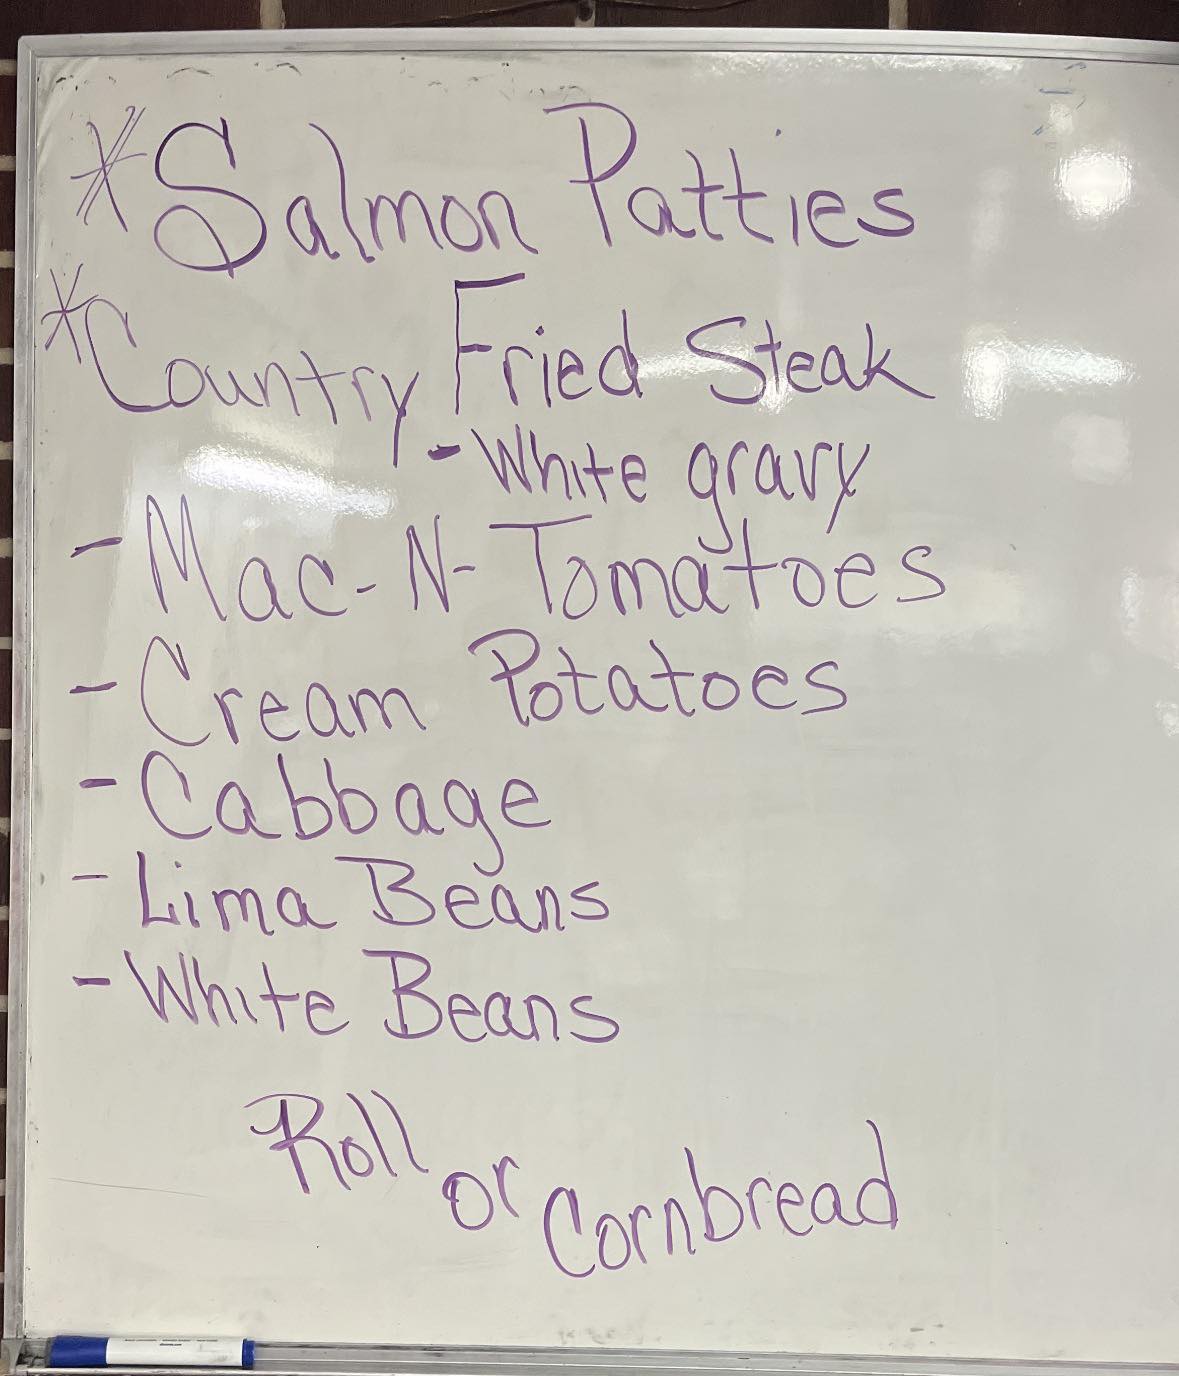 *Salmon Patties
*Country Fried Steak
- White gravy
- Mac-N-Tomatoes
- Cream Potatoes
- Cabbage
- Lima Beans
- White Beans
Roll or Cornbread